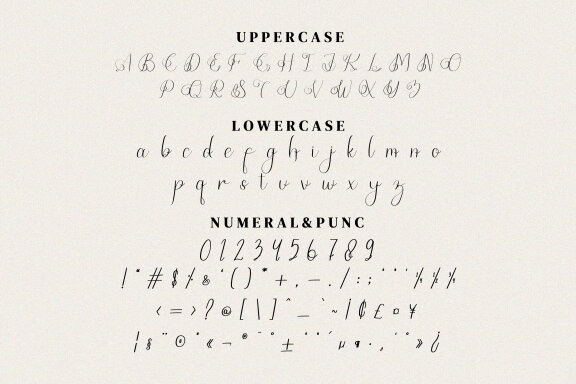 UPPERCASE
A B C D E F G H I J K L M N O
P Q R S T U V W X Y Z
LOWERCASE
a b c d e f g h i j k l m n o
p q r s t u v w x y z
NUMERAL&PUNC
0 1 2 3 4 5 6 7 8 9
! " # $ % & ' ( ) * + , - . / : ;
< = > ? @ [ \ ] ^ _ ` ~ | ¢ £ ¤ ¥
¦ § ¨ © « ¬ ® ¯ ° ± µ ¶ · , » ¿